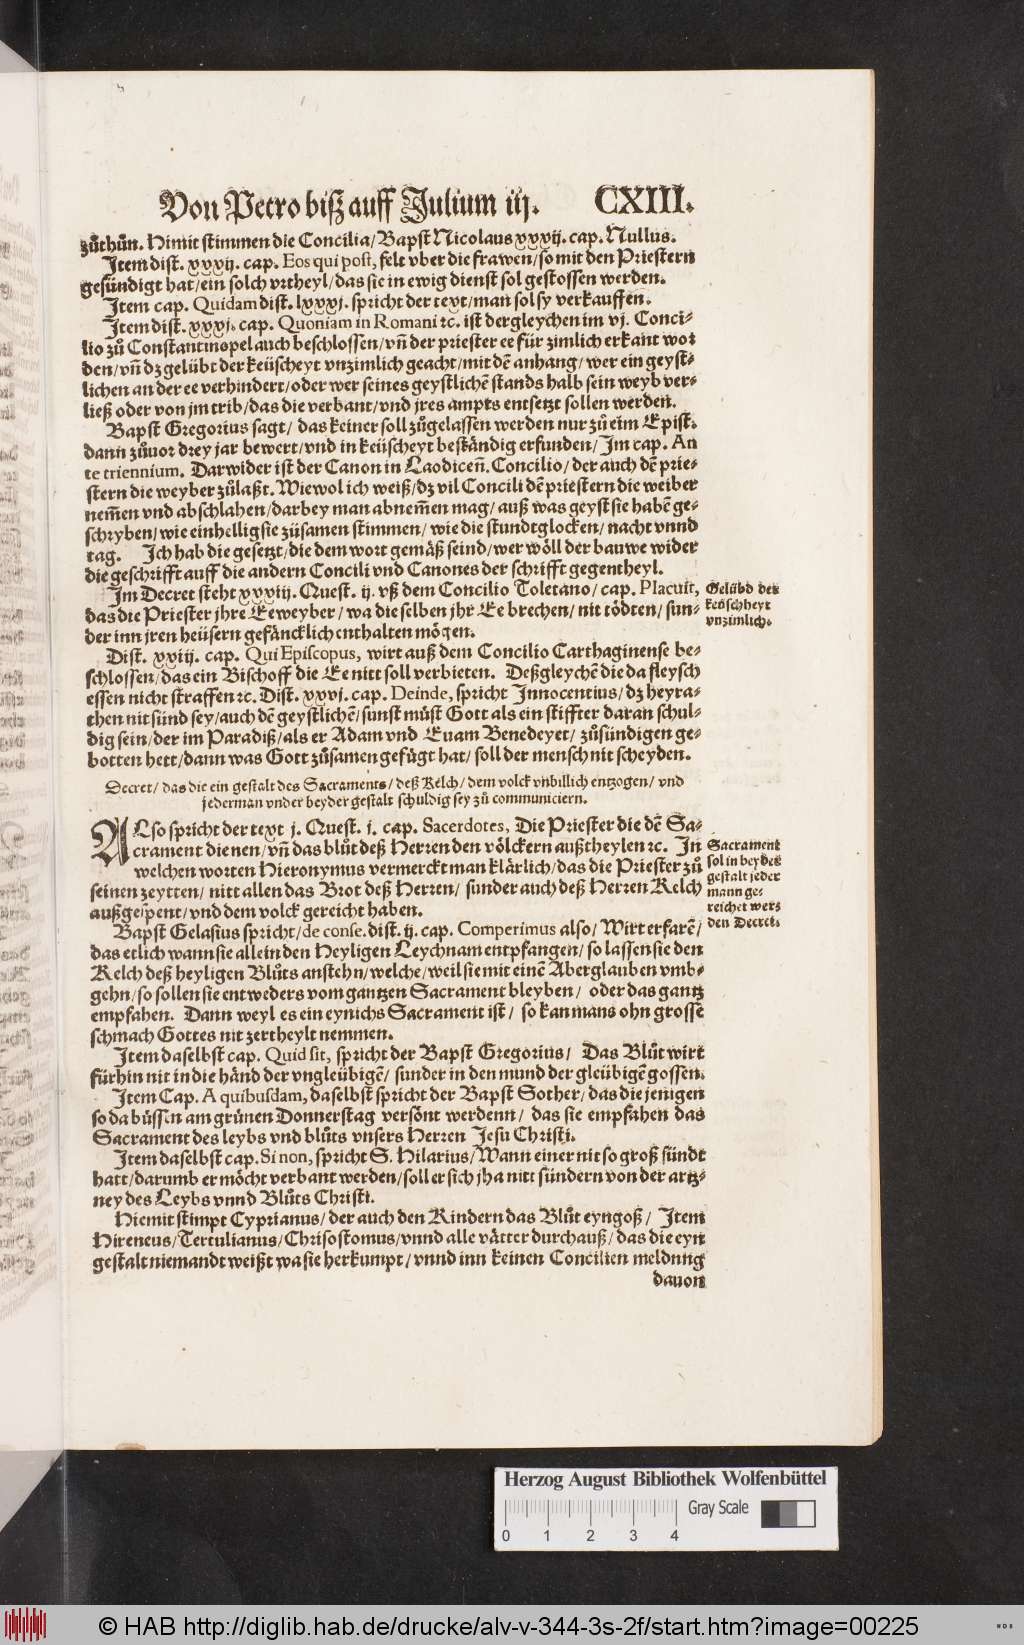 Von Petro biß auff Julium iij. CXIII.
zůthůn. Himit stimmen die Concilia/ Bapst Nicolaus xxxij. cap. Nullus.
Item dist. xxxij. cap. Eos qui post, felt vber die frawen/ so mit den Priestern
gesündigt hat/ ein solch vrtheyl/ das sie in ewig dienst sol gestossen werden.
Item cap. Quidam dist. lxxxj. spricht der text/ man sol sy verkauffen.
Item dist. xxxj. cap. Quoniam in Romani ⁊c. ist dergleychen im vj. Conci-
lio zů Constantinopel auch beschlossen/ vñ der priester ee für zimlich erkant wor
den/ vñ dz gelübt der keüscheyt vnzimlich geacht/ mit dẽ anhang/ wer ein geyst-
lichen an der ee verhindert/ oder wer seines geystlichẽ stands halb sein weyb ver-
ließ oder von jm trib/ das die verbant/ vnd jres ampts entsetzt sollen werden.
Bapst Gregorius sagt/ das keiner soll zůgelassen werden nur zů eim Epist.
dann zůuor drey jar bewert/ vnd in keüscheyt beständig erfunden/ Im cap. An
te triennium. Darwider ist der Canon in Laodiceñ. Concilio/ der auch dẽ prie-
stern die weyber zůlaßt. Wiewol ich weiß/ dz vil Concili dẽ priestern die weiber
nem̃en vnd abschlahen/ darbey man abnem̃en mag/ auß was geyst sie habẽ ge-
schryben/ wie einhellig sie züsamen stimmen/ wie die stundtglocken/ nacht vnnd
tag. Ich hab die gesetzt/ die dem wort gemäß seind/ wer wöll der bauwe wider
die geschrifft auff die andern Concili vnd Canones der schrifft gegentheyl.
Im Decret steht xxxiij. Quest. ij. vß dem Concilio Toletano/ cap. Placuit,
das die Priester jhre Eeweyber/ wa die selben jhr Ee brechen/ nit tödten/ sun-
der inn jren heüsern gefäncklich enthalten mögen.
Gelübd der
keüschheyt
vnzimlich.
Dist. xxiij. cap. Qui Episcopus, wirt auß dem Concilio Carthaginense be-
schlossen/ das ein Bischoff die Ee nitt soll verbieten. Deßgleychẽ die da fleysch
essen nicht straffen ⁊c. Dist. xxvj. cap. Deinde, spricht Innocentius/ dz heyra-
then nit sünd sey/ auch dẽ geystlichẽ/ sunst můst Gott als ein stiffter daran schul-
dig sein/ der im Paradiß/ als er Adam vnd Euam Benedeyet/ zůsündigen ge-
botten hett/ dann was Gott zůsamen gefügt hat/ soll der mensch nit scheyden.
Decret/ das die ein gestalt des Sacraments/ deß Kelch/ dem volck vnbillich entzogen/ vnd
jederman vnder beyder gestalt schuldig sey zů communiciern.
ALso spricht der text j. Quest. j. cap. Sacerdotes, Die Priester die dẽ Sa-
crament dienen/ vñ das blůt deß Herren den völckern außtheylen ⁊c. In
welchen worten Hieronymus vermerckt man klärlich/ das die Priester zů
seinen zeytten/ nitt allen das Brot deß Herren/ sunder auch deß Herren Kelch
außgespent/ vnd dem volck gereicht haben.
Sacrament
sol in beydes
gestalt jeder
mann ge-
reichet wer-
den Decret.
Bapst Gelasius spricht/ de conse. dist. ij. cap. Comperimus also/ Wirt erfarẽ/
das etlich wann sie allein den Heyligen Leychnam entpfangen/ so lassen sie den
Kelch deß heyligen Blůts anstehn/ welche/ weil sie mit einẽ Aberglauben vmb-
gehn/ so sollen sie entweders vom gantzen Sacrament bleyben/ oder das gantz
empfahen. Dann weyl es ein eynichs Sacrament ist/ so kan mans ohn grosse
schmach Gottes nit zertheylt nemmen.
Item daselbst cap. Quid sit, spricht der Bapst Gregorius/ Das Blůt wirt
fürhin nit in die händ der vngleübigẽ/ sunder in den mund der gleübigẽ gossen.
Item Cap. A quibusdam, daselbst spricht der Bapst Sother/ das die jenigen
so da bůssen am grünen Donnerstag versönt werdenn/ das sie empfahen das
Sacrament des leybs vnd blůts vnsers Herren Jesu Christi.
Item daselbst cap. Si non, spricht S. Hilarius/ Wann einer nit so groß sündt
hatt/ darumb er möcht verbant werden/ soll er sich jha nitt sündern von der artz-
ney des Leybs vnnd Blůts Christi.
Hiemit stimpt Cyprianus/ der auch den Kindern das Blůt eyngoß/ Item
Hireneus/ Tertulianus/ Chrisostomus/ vnnd alle vätter durchauß/ das die eyn
gestalt niemandt weißt wa sie herkumpt/ vnnd inn keinen Concilien meldung
dauon
Herzog August Bibliothek Wolfenbüttel
0 1 2 3 4 Gray Scale
© HAB http://diglib.hab.de/drucke/alv-v-344-3s-2f/start.htm?image=00225